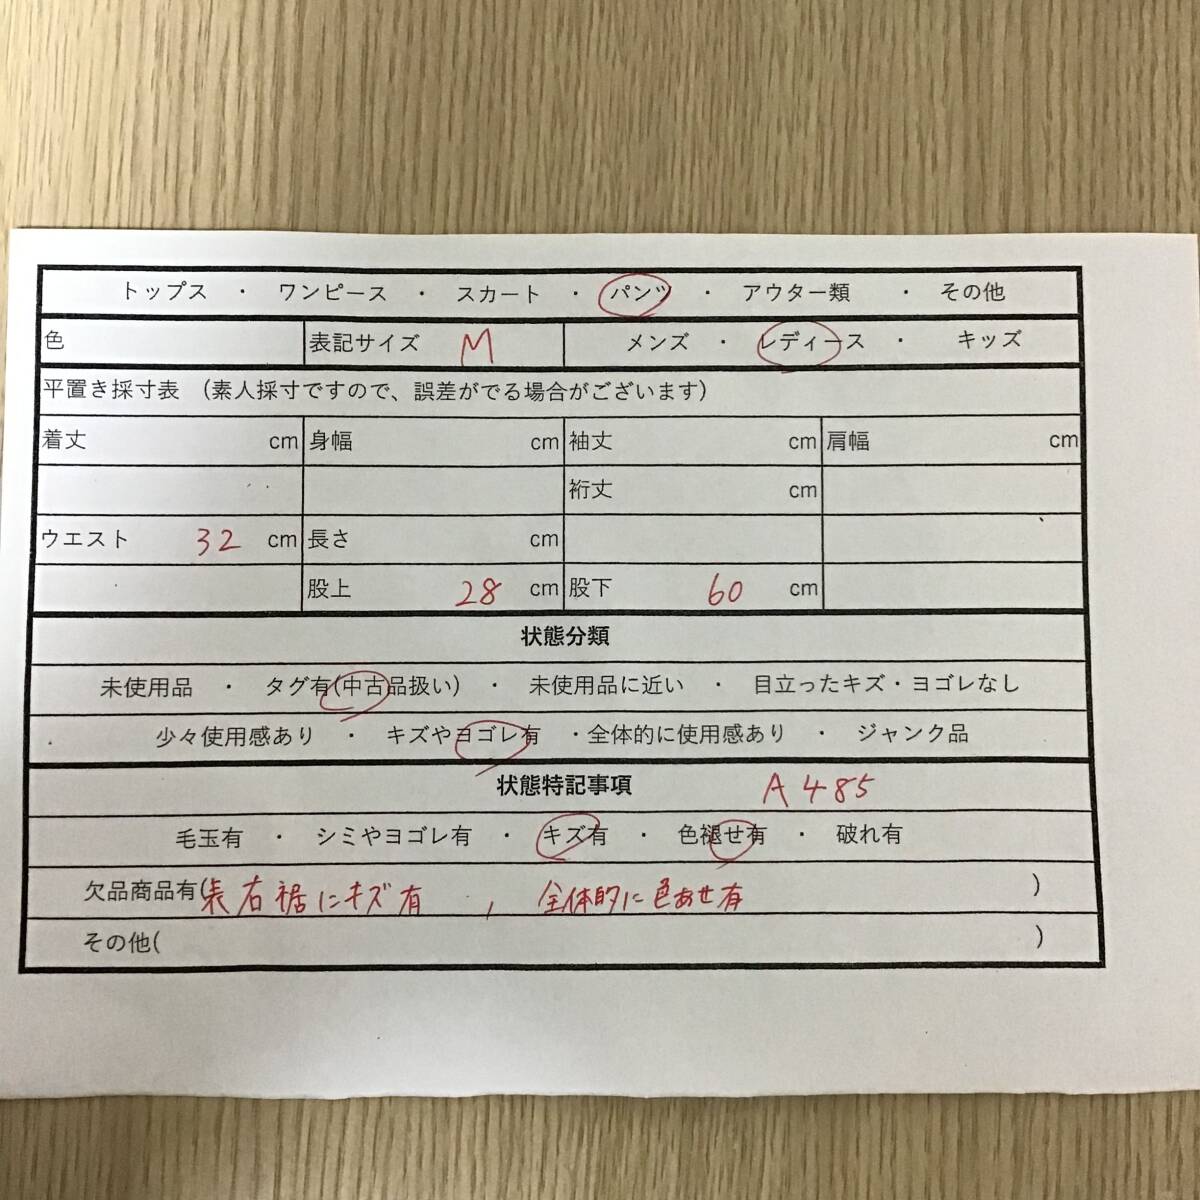 トップス ・ ワンピース ・ スカート ・ パンツ ・ アウター類 ・ その他
色 表記サイズ M メンズ ・ レディース ・ キッズ
平置き採寸表 (素人採寸ですので、誤差がでる場合がございます)
着丈 cm 身幅 cm 袖丈 cm 肩幅 cm
裄丈 cm
ウエスト 32 cm 長さ cm
股上 28 cm 股下 60 cm
状態分類
未使用品 ・ タグ有(中古品扱い) ・ 未使用品に近い ・ 目立ったキズ・ヨゴレなし
少々使用感あり ・ キズやヨゴレ有 ・全体的に使用感あり ・ ジャンク品
状態特記事項 A485
毛玉有 ・ シミやヨゴレ有 ・ キズ有 ・ 色褪せ有 ・ 破れ有
欠品商品有(表右裾にキズ有 , 全体的に色あせ有 )
その他( )